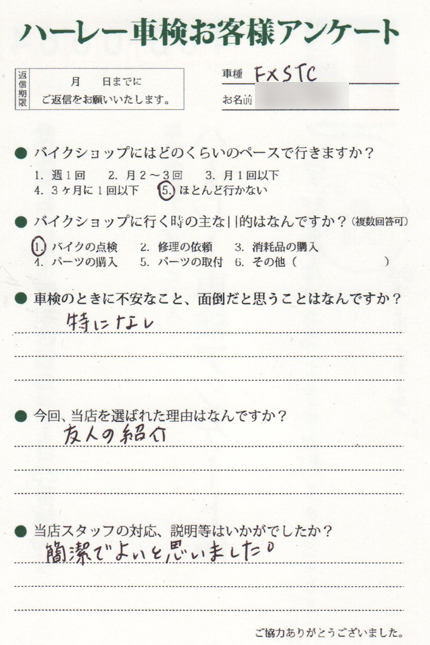 ハーレー車検お客様アンケート
返信期限
月　　日までに
ご返信をお願いいたします。
車種 FXSTC
お名前
● バイクショップにはどのくらいのペースで行きますか？
1. 週1回　2. 月2～3回　3. 月1回以下
4. 3ヶ月に1回以下　5. ほとんど行かない
● バイクショップに行く時の主な目的はなんですか？（複数回答可）
1. バイクの点検　2. 修理の依頼　3. 消耗品の購入
4. パーツの購入　5. パーツの取付　6. その他（　　　　　　）
● 車検のときに不安なこと、面倒だと思うことはなんですか？
特になし
● 今回、当店を選ばれた理由はなんですか？
友人の紹介
● 当店スタッフの対応、説明等はいかがでしたか？
簡潔でよいと思いました。
ご協力ありがとうございました。